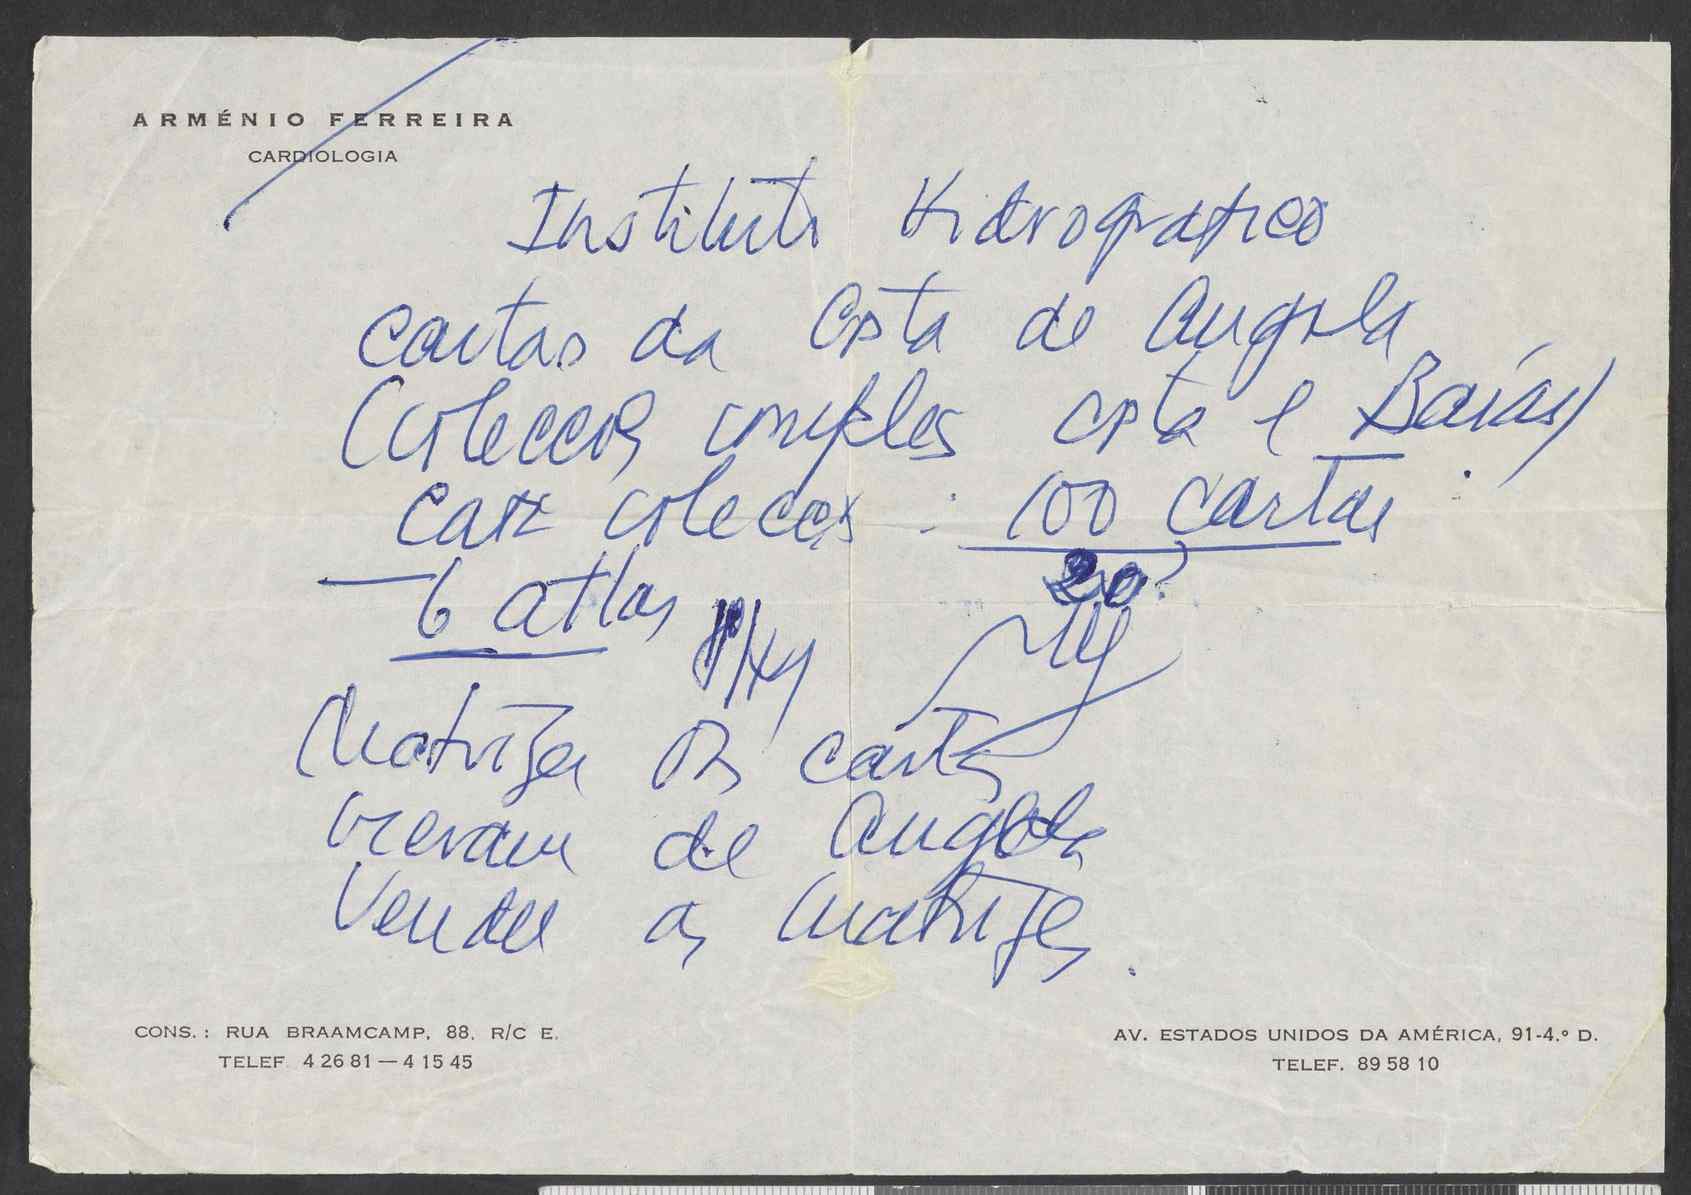 ARMÉNIO FERREIRA
CARDIOLOGIA
Instituto Hidrografico
cartas da Costa de Angola
(colecção costa e Baías)
colecção : 100 cartas
6 atlas
20?
Matrizes cartas
vieram de Angola
Vender as matrizes.
CONS. : RUA BRAAMCAMP, 88, R/C E.
TELEF. 4 26 81 — 4 15 45
AV. ESTADOS UNIDOS DA AMÉRICA, 91-4.º D.
TELEF. 89 58 10